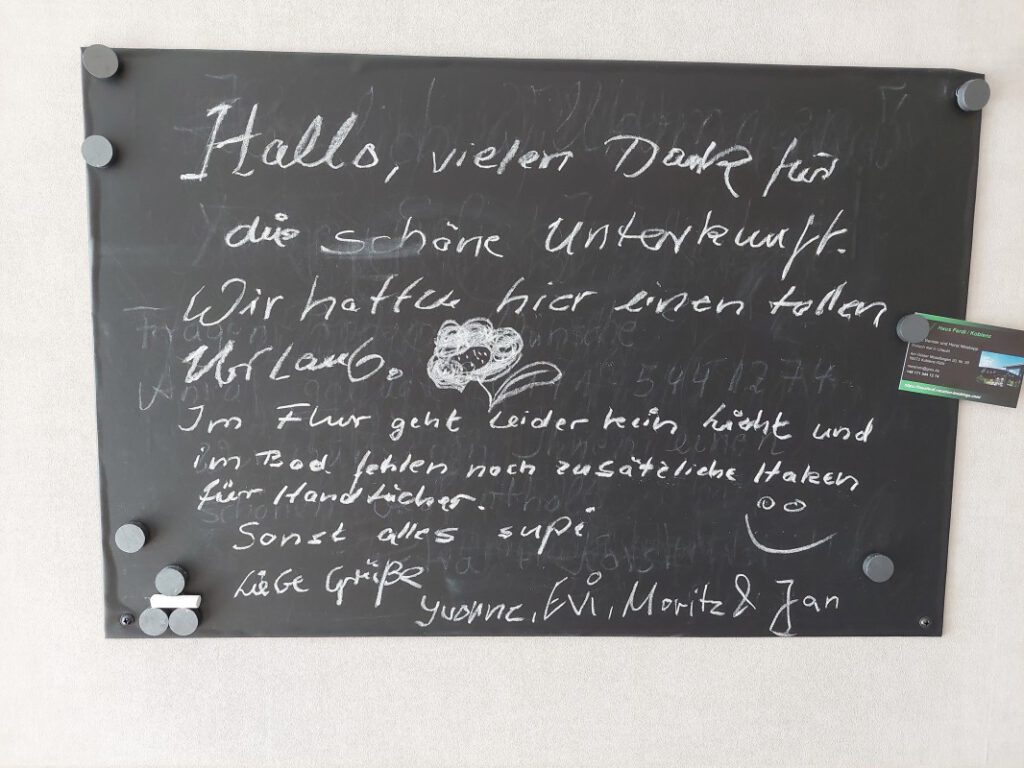 Hallo, vielen Dank für
die schöne Unterkunft.
Wir hatten hier einen tollen
Urlaub.
Im Flur geht leider kein Licht und
im Bad fehlen noch zusätzliche Haken
für Handtücher.
Sonst alles supi
Liebe Grüße
Yvonne, Evi, Moritz & Jan
Haus Ferdi / Koblenz